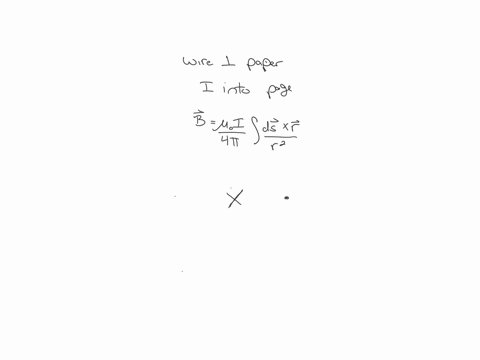 wire ⊥ paper
I into page
B⃗ = μ₀I/4π ∫ ds⃗ × r⃗ / r²
X •